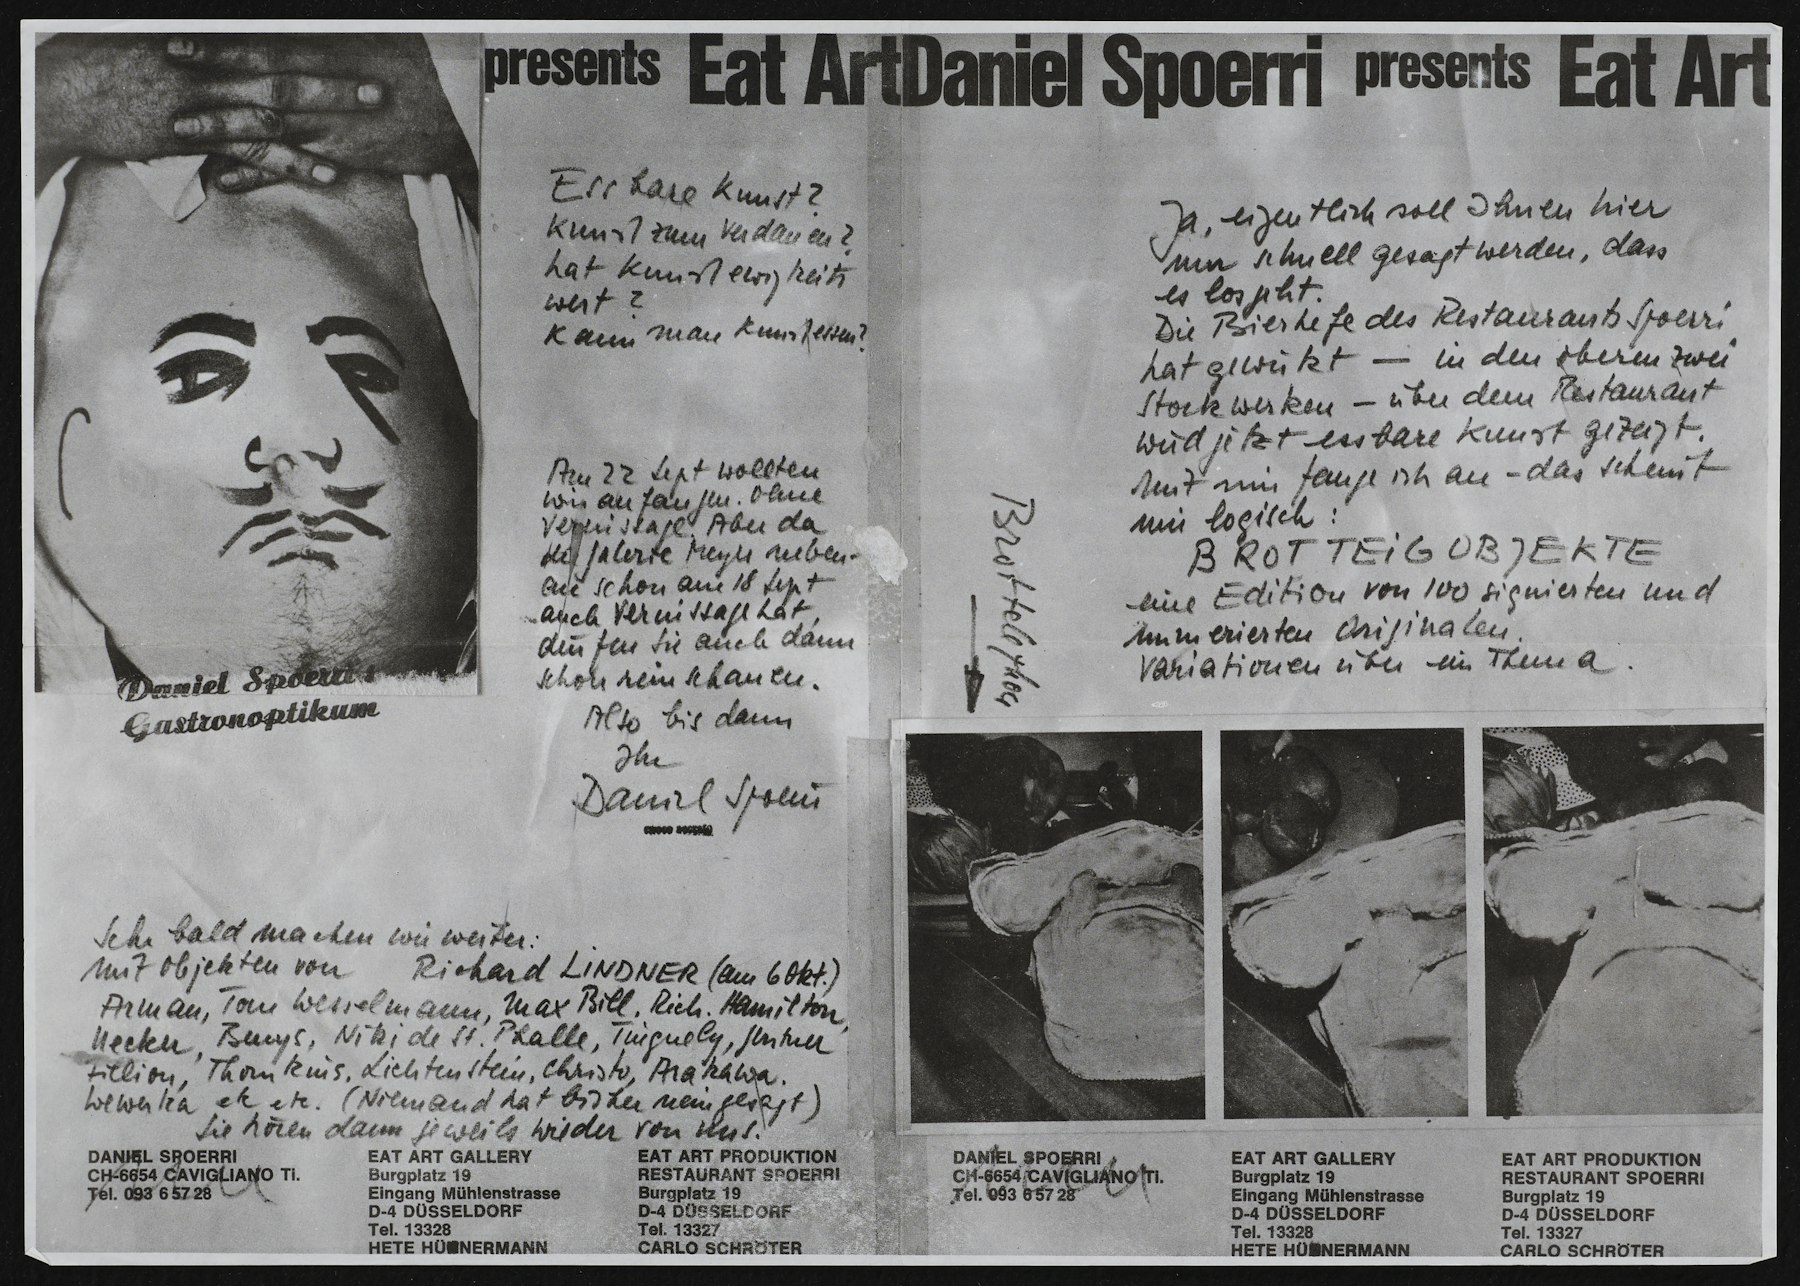 presents Eat Art Daniel Spoerri presents Eat Art
Essbare Kunst?
Kunst zum Verdauen?
hat Kunst ewigkeits
wert?
Kann man Kunst essen?
Am 22 Sept wollten
wir anfangen. Ohne
Vernissage. Aber da
die Galerie Meyer neben-
an schon am 18 Sept
auch Vernissage hat,
dürfen Sie auch dann
schon reinschauen.
Also bis dann
Ihr
Daniel Spoerri
Daniel Spoerri's
Gastronoptikum
Sehr bald machen wir weiter:
mit objekten von Richard LINDNER (am 6 Okt.)
Arman, Tom Wesselmann, Max Bill, Rich. Hamilton,
Uecker, Beuys, Niki de St. Phalle, Tinguely, Gerstner
Filliou, Thomkins, Lichtenstein, Christo, Arakawa.
Wewerka etc etc. (Niemand hat bisher nein gesagt)
Sie hören dann jeweils wieder von uns.
DANIEL SPOERRI
CH-6654 CAVIGLIANO Ti.
Tel. 093 6 57 28
EAT ART GALLERY
Burgplatz 19
Eingang Mühlenstrasse
D-4 DÜSSELDORF
Tel. 13328
HETE HÜNNERMANN
EAT ART PRODUKTION
RESTAURANT SPOERRI
Burgplatz 19
D-4 DÜSSELDORF
Tel. 13327
CARLO SCHRÖTER
Ja, eigentlich soll Ihnen hier
nur schnell gesagt werden, dass
es losgeht.
Die Bierhefe des Restaurants Spoerri
hat gewirkt — in den oberen zwei
Stockwerken — über dem Restaurant
wird jetzt essbare Kunst gezeigt.
Mit mir fange ich an - das scheint
mir logisch:
BROTTEIGOBJEKTE
eine Edition von 100 signierten und
numerierten Originalen.
Variationen über ein Thema.
DANIEL SPOERRI
CH-6654 CAVIGLIANO Ti.
Tel. 093 6 57 28
EAT ART GALLERY
Burgplatz 19
Eingang Mühlenstrasse
D-4 DÜSSELDORF
Tel. 13328
HETE HÜNNERMANN
EAT ART PRODUKTION
RESTAURANT SPOERRI
Burgplatz 19
D-4 DÜSSELDORF
Tel. 13327
CARLO SCHRÖTER